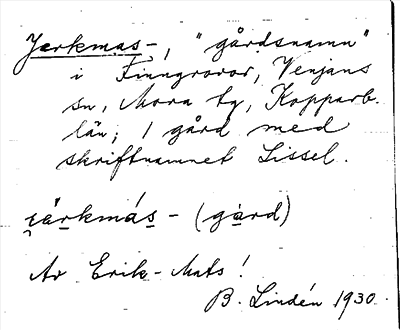 Jerkmas-, "gårdsnamn"
i Finngruvor, Venjans
sn, Mora tg, Kopparb.
län; 1 gård med
skriftnamnet Lissel.
- (gård)
Av Erik-Mats!
B. Lindén 1930.